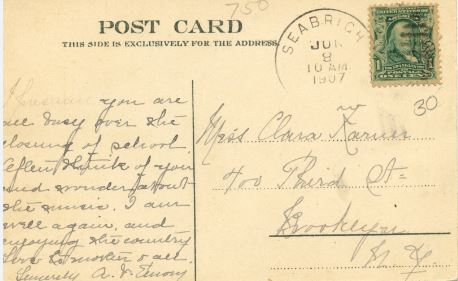 750
POST CARD
THIS SIDE IS EXCLUSIVELY FOR THE ADDRESS
SEABRIGH
JUN
8
10 AM
1907
30
I presume you are
all busy over the
closing of school.
Often think of you
and wonder about
the music. I am
well again, and
enjoying the country
Love to mother & all.
Sincerely A. V.
Miss Clara
400 Third St
Brooklyn
N. Y.